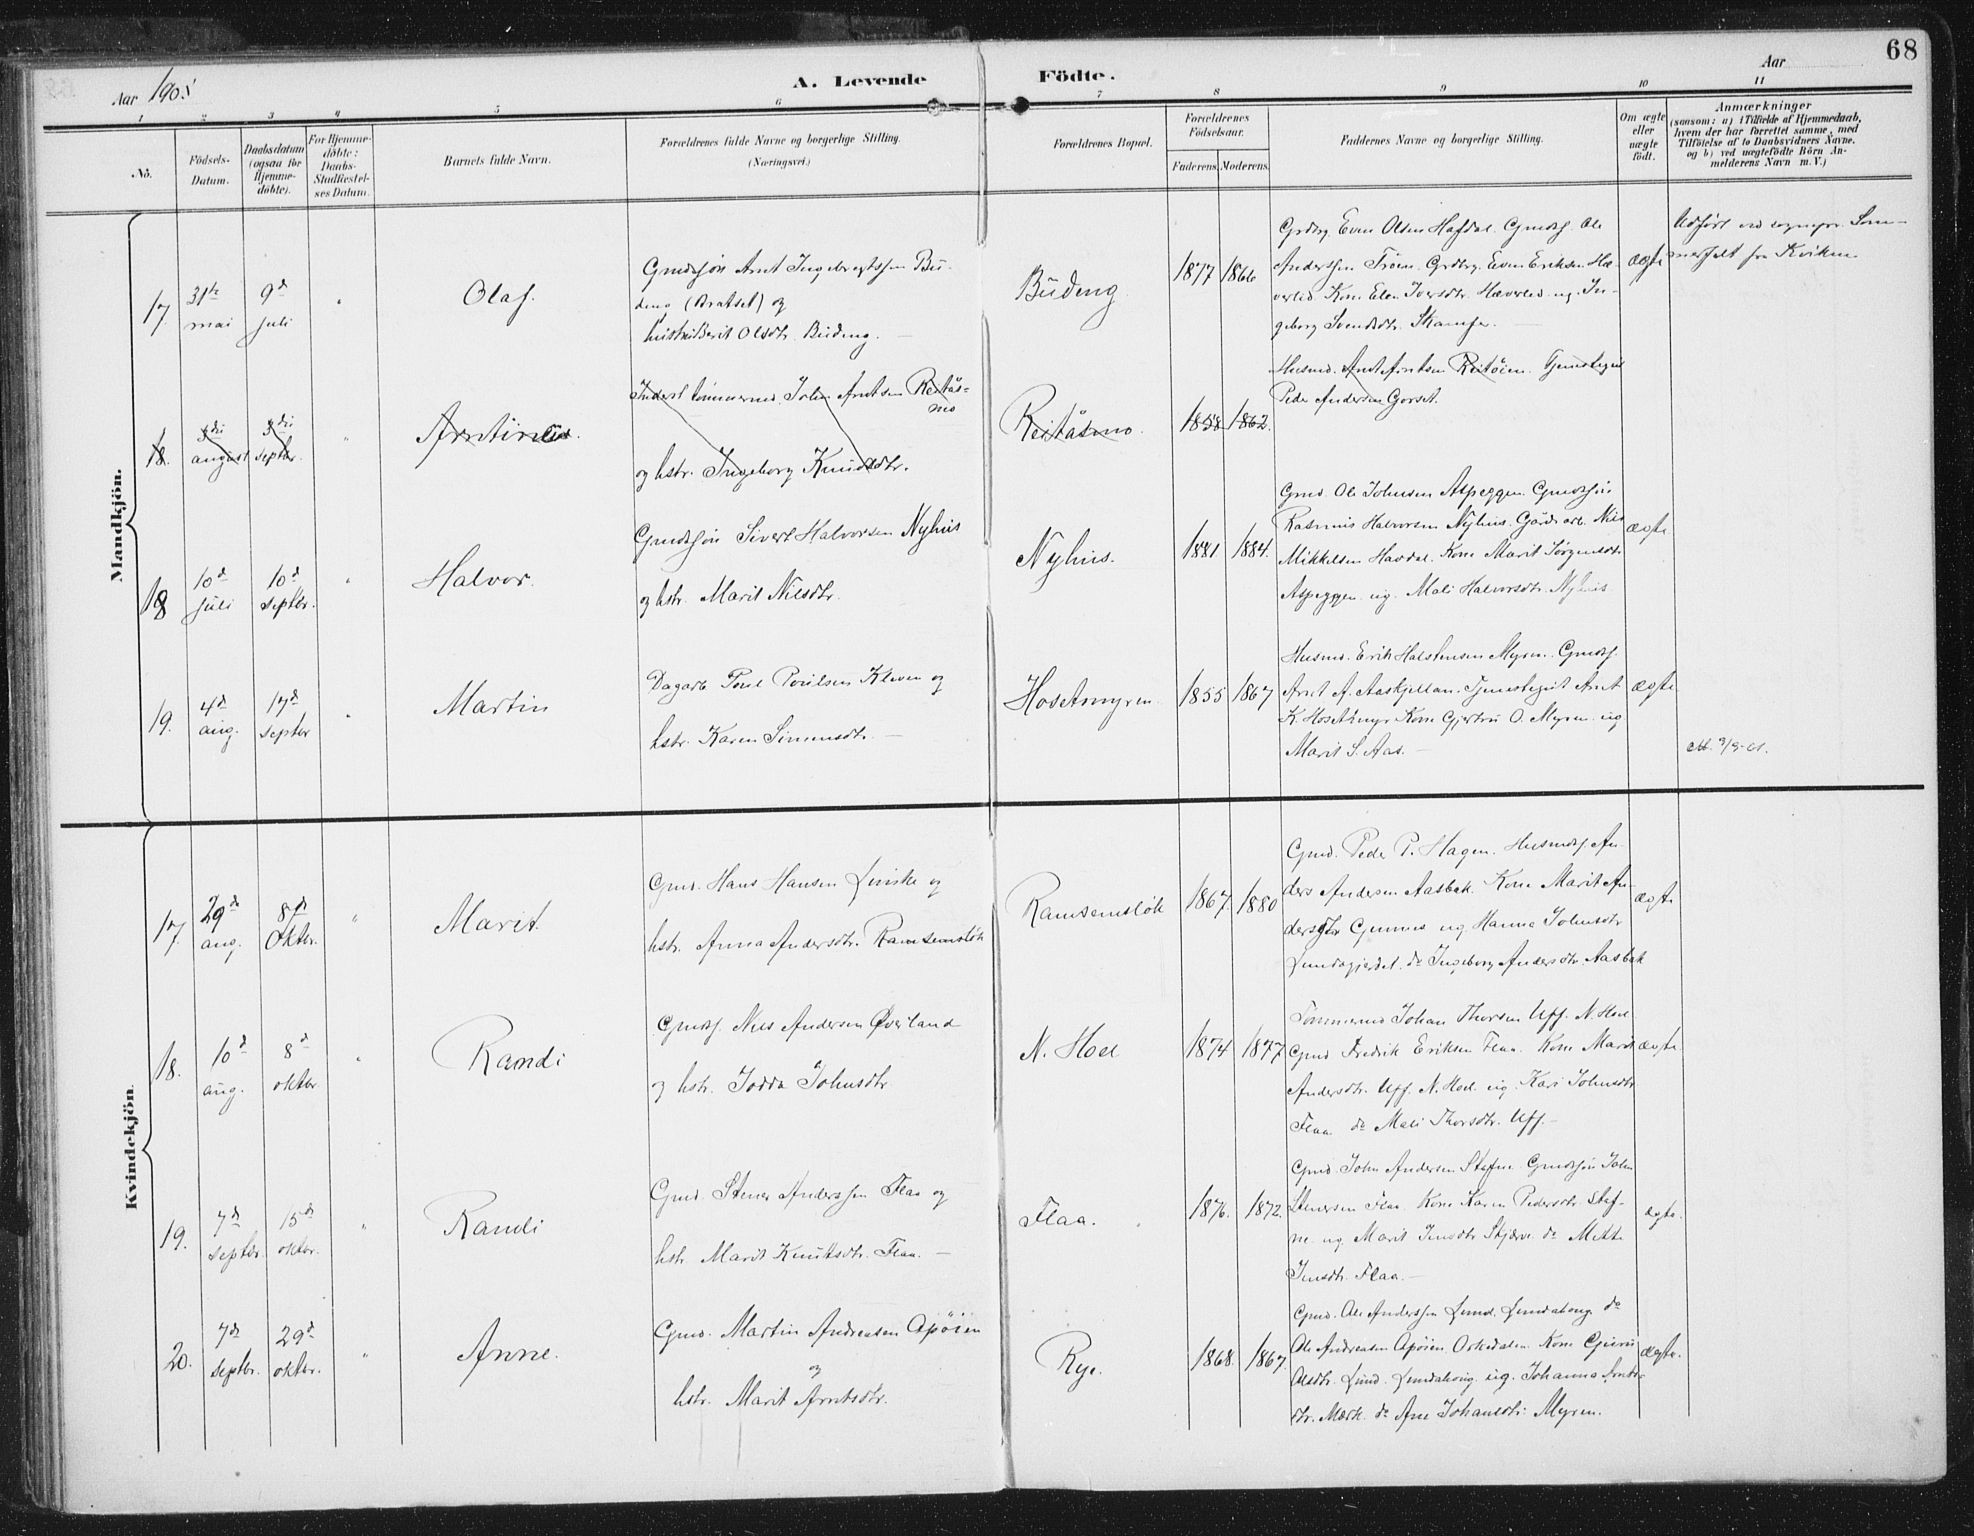 68
Aar 1905
A. Levende Födte.
Aar
1 2 3 4 5 6 7 8 9 10 11
No.
Födsels-
Datum.
Daabsdatum
(ogsaa for
Hjemme-
döbte).
For Hjemme-
döbte:
Daabs-
Stadfæstel-
ses Datum.
Barnets fulde Navn.
Forældrenes fulde Navne og borgerlige Stilling.
(Næringsvei.)
Forældrenes Bopæl.
Forældrenes
Födselsaar.
Faderens. Moderens.
Faddernes Navne og borgerlige Stilling.
Om ægte
eller
uægte
födt.
Anmærkninger
(saasom: a) i Tilfælde af Hjemmedaab,
hvem der har forrettet samme, med
Tilföielse af to Daabsvidners Navne,
og b) ved uægtefödte Börn An-
melderens Navn m. V.)
Mandkjön.
17. 31te mai
9d juli
"
Olaf.
Gmdsön Arnt Ingebrigtssen Bu-
deng (Bratset) og
hustru Berit Olsdtr. Budeng. —
Budeng
1877 1866
Grdbrg Even Olsen Hafdal. Gmdsf. Ole
Anderssen Tröen. Grdbrg. Even Eriksen Hæ-
verlid. Kone Elen Iversdtr. Hæverlid og In-
geborg Svendsdtr. Skamfer.
ægte
Udført ved sognepr. Som-
merfelt fra Kvikne
18. 3die august
3die septbr.
"
Arntinius.
Inderst tömmermd. John Arntsen Reitås-
mo
og hstr. Ingeborg Knudsdtr.
Reitåsmo.
1858 1862.
Husmd. Arnt Arntsen Reitöien. Tjenstegut
Peder Andersen Gorset.
18 10d juli
10d septbr.
"
Halvor.
Gmdsön Sivert Halvorsen Nyhus
og hstr. Marit Nilsdtr.
Nyhus.
1881 1884.
Gmd. Ole Johnsen Aspeggen. Gmdsön
Rasmus Halvorsen Nyhus. Gårdarb. Nils
Mikkelsen Havdal. Kone Marit Jörgensdtr
Aspeggen og Mali Halvorsdtr. Nyhus.
ægte
19. 4d aug.
17d septbr
"
Martin
Dagarb Poul Poulsen Kleven og
hstr. Karen Simensdtr. —
Hosetmyren
1855 1867
Husmd. Erik Halstensen Myren. Gmdsf.
Arnt A. Aaskjellan. Tjenstegut Arnt
K. Hosetmyr Kone Gjertru O. Myren og
Marit S. Aas. —
ægte
Kvindekjön
17. 29de aug.
8de oktbr.
"
Marit.
Gmd. Hans Hansen
hstr. Anna Andersdtr. Ramsemslök
Ramsemslök
1867. 1880
Gmd. Peder P. Hagen. Husmdsf. An-
ders Andersen Aasbak. Kone Marit An-
dersdtr Gunnes og Hanna Johnsdtr
Lundagjerdet. do Ingeborg Andersdtr Aasbak
ægte
18. 10d aug.
8d oktbr
"
Randi
Gmdsf. Nils Andersen Överland
og hstr. Jodda Johnsdtr
N. Hoel
1874 1877
Tömmermd Johan Thorsen Uff. N. Hoel
Gmd Fredrik Eriksen Flaa. Kone Marit
Andersdtr. Uff. N. Hoel og Kari Johnsdtr
Flaa do Mali Thorsdtr. Uff. —
ægte
19. 7d septbr.
15d oktbr.
"
Randi
Gmd. Stener Anderssen Flaa og
hstr. Marit Knutsdtr. Flaa. —
Flaa.
1876. 1872.
Gmd. John Andersen Stefne. Gmdsön John
Stenersen Flaa. Kone Karen Pedersdtr. Stef-
ne og Marit Jensdtr Skjærv do Mette
Jensdtr. Flaa. —
ægte.
20. 7de septbr.
29d oktbr.
"
Anne.
Gmd. Martin Andreasen Apöien
og
hstr. Marit Arntsdtr.
Rye.
1868. 1867.
Gmd. Ole Anderssen Lund. Lundahoug do
Ole Andreasen Apöien Orkedalen. Kone Gjeru
Olsdtr. Lund. Lundahoug og Johanna Arnts-
dtr. Mærk. do Ane Johansdtr. Myren.
ægte.